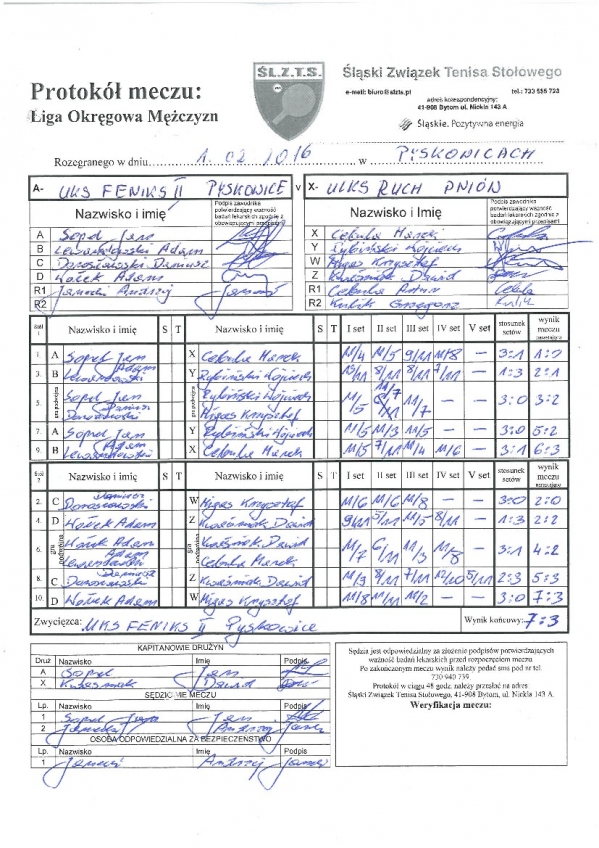 ŚL.Z.T.S.
Śląski Związek Tenisa Stołowego
e-mail: biuro@slzts.pl tel.: 730 535 728
adres korespondencyjny:
41-908 Bytom ul. Nickla 143 A
Śląskie. Pozytywna energia
Protokół meczu:
Liga Okręgowa Mężczyzn
Rozegranego w dniu 1.02.2016 w PYSKOWICACH
A- UKS FENIKS II PYSKOWICE v X- ULKS RUCH PNIÓW
Nazwisko i imię Podpis zawodnika potwierdzający ważność badań lekarskich zgodnie z obowiązującymi przepisami
Nazwisko i Imię Podpis zawodnika potwierdzający ważność badań lekarskich zgodnie z obowiązującymi przepisami
A Sopel Jan X Cebula Marek
B Lewandowski Adam Y Rybiński Wojciech
C Dorosławski Dariusz Z Migas Krzysztof
D Wołek Adam Z Kuśmierek Dawid
R1 Andrzej R1 Cebula
R2 R2 Kulik Grzegorz Kulik
Nazwisko i imię S T Nazwisko i imię S T I set II set III set IV set V set stosunek setów wynik meczu
1. A Sopel Jan X Cebula Marek 11/4 11/5 9/11 11/8 – 3:1 1:0
3. B Lewandowski Adam Y Rybiński Wojciech 13/11 8/11 8/11 7/11 – 1:3 2:1
5. gra podwójna Sopel Jan Rybiński Wojciech 11/5 – – 3:0 3:2
Dorosławski Dariusz Migas Krzysztof
7. A Sopel Jan Y Rybiński Wojciech 11/5 11/3 11/5 – – 3:0 5:2
9. B Lewandowski Adam X Cebula Marek 11/5 7/11 11/4 11/6 – 3:1 6:3
Nazwisko i imię S T Nazwisko i imię S T I set II set III set IV set V set stosunek setów wynik meczu
2. C Dorosławski Dariusz W Migas Krzysztof 11/6 11/6 11/8 – – 3:0 2:0
4. D Wołek Adam Z Dawid 9/11 5/11 11/5 8/11 – 1:3 2:2
6. gra podwójna Wołek Adam Dawid 11/7 6/11 11/3 11/8 – 3:1 4:2
Lewandowski Adam Cebula Marek
8. C Dorosławski Dariusz Z Dawid 11/3 8/11 7/11 12/10 5/11 2:3 5:3
10. D Wołek Adam W Migas Krzysztof 11/8 11/2 – – 3:0 7:3
Zwycięzca: UKS FENIKS II Pyskowice Wynik końcowy: 7:3
KAPITANOWIE DRUŻYN
Druż Nazwisko Imię Podpis
A Sopel Jan
X Dawid
SĘDZIOWIE MECZU
Lp. Nazwisko Imię Podpis
1 Sopel Jan
2 Andrzej
OSOBA ODPOWIEDZIALNA ZA BEZPIECZEŃSTWO
Lp. Nazwisko Imię Podpis
1 Andrzej
Sędzia jest odpowiedzialny za złożenie podpisów potwierdzających
ważność badań lekarskich przed rozpoczęciem meczu.
Po zakończonym meczu wynik należy podać sms pod nr tel.
730 940 739.
Protokół w ciągu 48 godz. należy przesłać na adres
Śląski Związek Tenisa Stołowego, 41-908 Bytom, ul. Nickla 143 A.
Weryfikacja meczu: